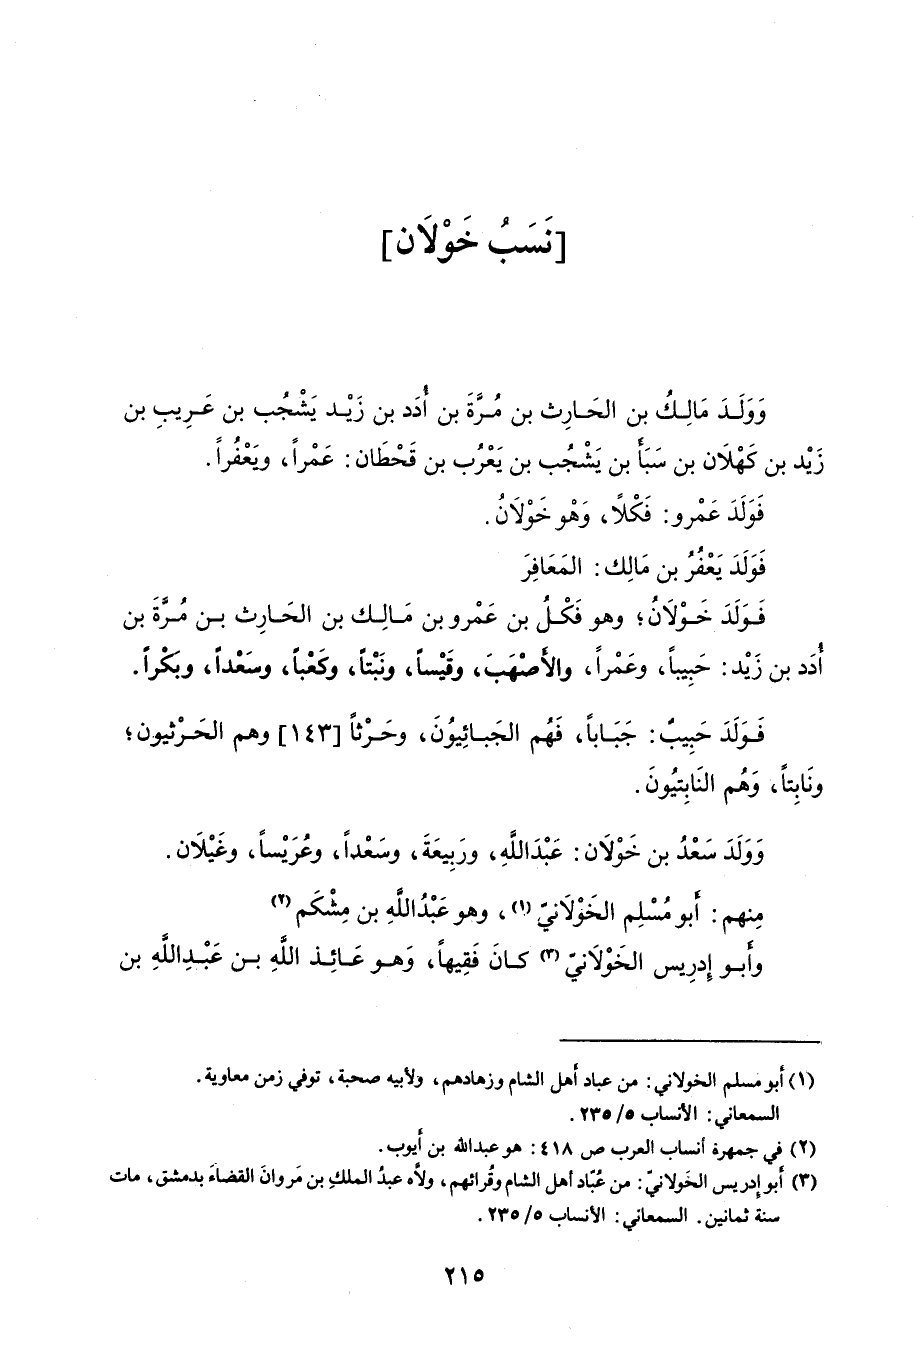 [نَسَبُ خَوْلَان]
وَوَلَـدَ مَالِـكُ بن الحَـارِث بن مُـرَّةَ بن أُدَد بن زَيْـد يَشْجُب بن عَـرِيبِ بن
زَيْد بن كَهْلَان بن سَبَأ بن يَشْجُب بن يَعْرُب بن قَحْطَان: عَمْراً، ويَعْفُراً.
فَوَلَدَ عَمْرو: فَكْلًا، وَهْو خَوْلَانُ.
فَوَلَدَ يَعْفُرُ بن مَالِك: المَعَافِرَ
فَـوَلَدَ خَـوْلَانُ؛ وهو فَكْـلُ بن عَمْرو بن مَـالِـك بن الحَـارث بـن مُـرَّةَ بن
أُدَد بن زَيْد: حَبِيباً، وعَمْراً، والأَصْهَبَ، وقَيْساً، ونَبْتاً، وكَعْباً، وسَعْداً، وبَكْراً.
فَـوَلَدَ حَبِيبٌ: جَبَـاباً، فَهُم الجَبـائِيوُنَ، وحَـرْثاً [١٤٣] وهم الحَـرْثيون؛
ونَابِتاً، وَهُم النَابِتيُونَ.
وَوَلَدَ سَعْدُ بن خَوْلَان: عَبْدَاللَّهِ، ورَبِيعَةَ، وسَعْداً، وعُرَيْساً، وغَيْلَان.
مِنهم: أَبو مُسْلِم الخَوْلَانيّ (١)، وهو عَبْدُاللَّهِ بن مِشْكَم (٢)
وأَبـو إدرِيس الخَوْلَانيّ (٣) كـانَ فَقِيهاً، وَهـو عَـائِـذ اللَّهِ بـن عَبْـدِاللَّهِ بن
(١) أَبو مسلم الخولاني: من عباد أهل الشام وزهادهم، ولأبيه صحبة، توفي زمن معاوية.
السمعاني: الأنساب ٥/ ٢٣٥.
(٢) في جمهرة أنساب العرب ص ٤١٨: هو عبدالله بن أَيوب.
(٣) أَبو إدريس الخولانيّ: من عُبّاد أهل الشام وقُرائهم، ولاَّه عبدُ الملكِ بن مَروانَ القضاءَ بدمشق، مات
سنة ثمانين. السمعاني: الأنساب ٥/ ٢٣٥.
٢١٥